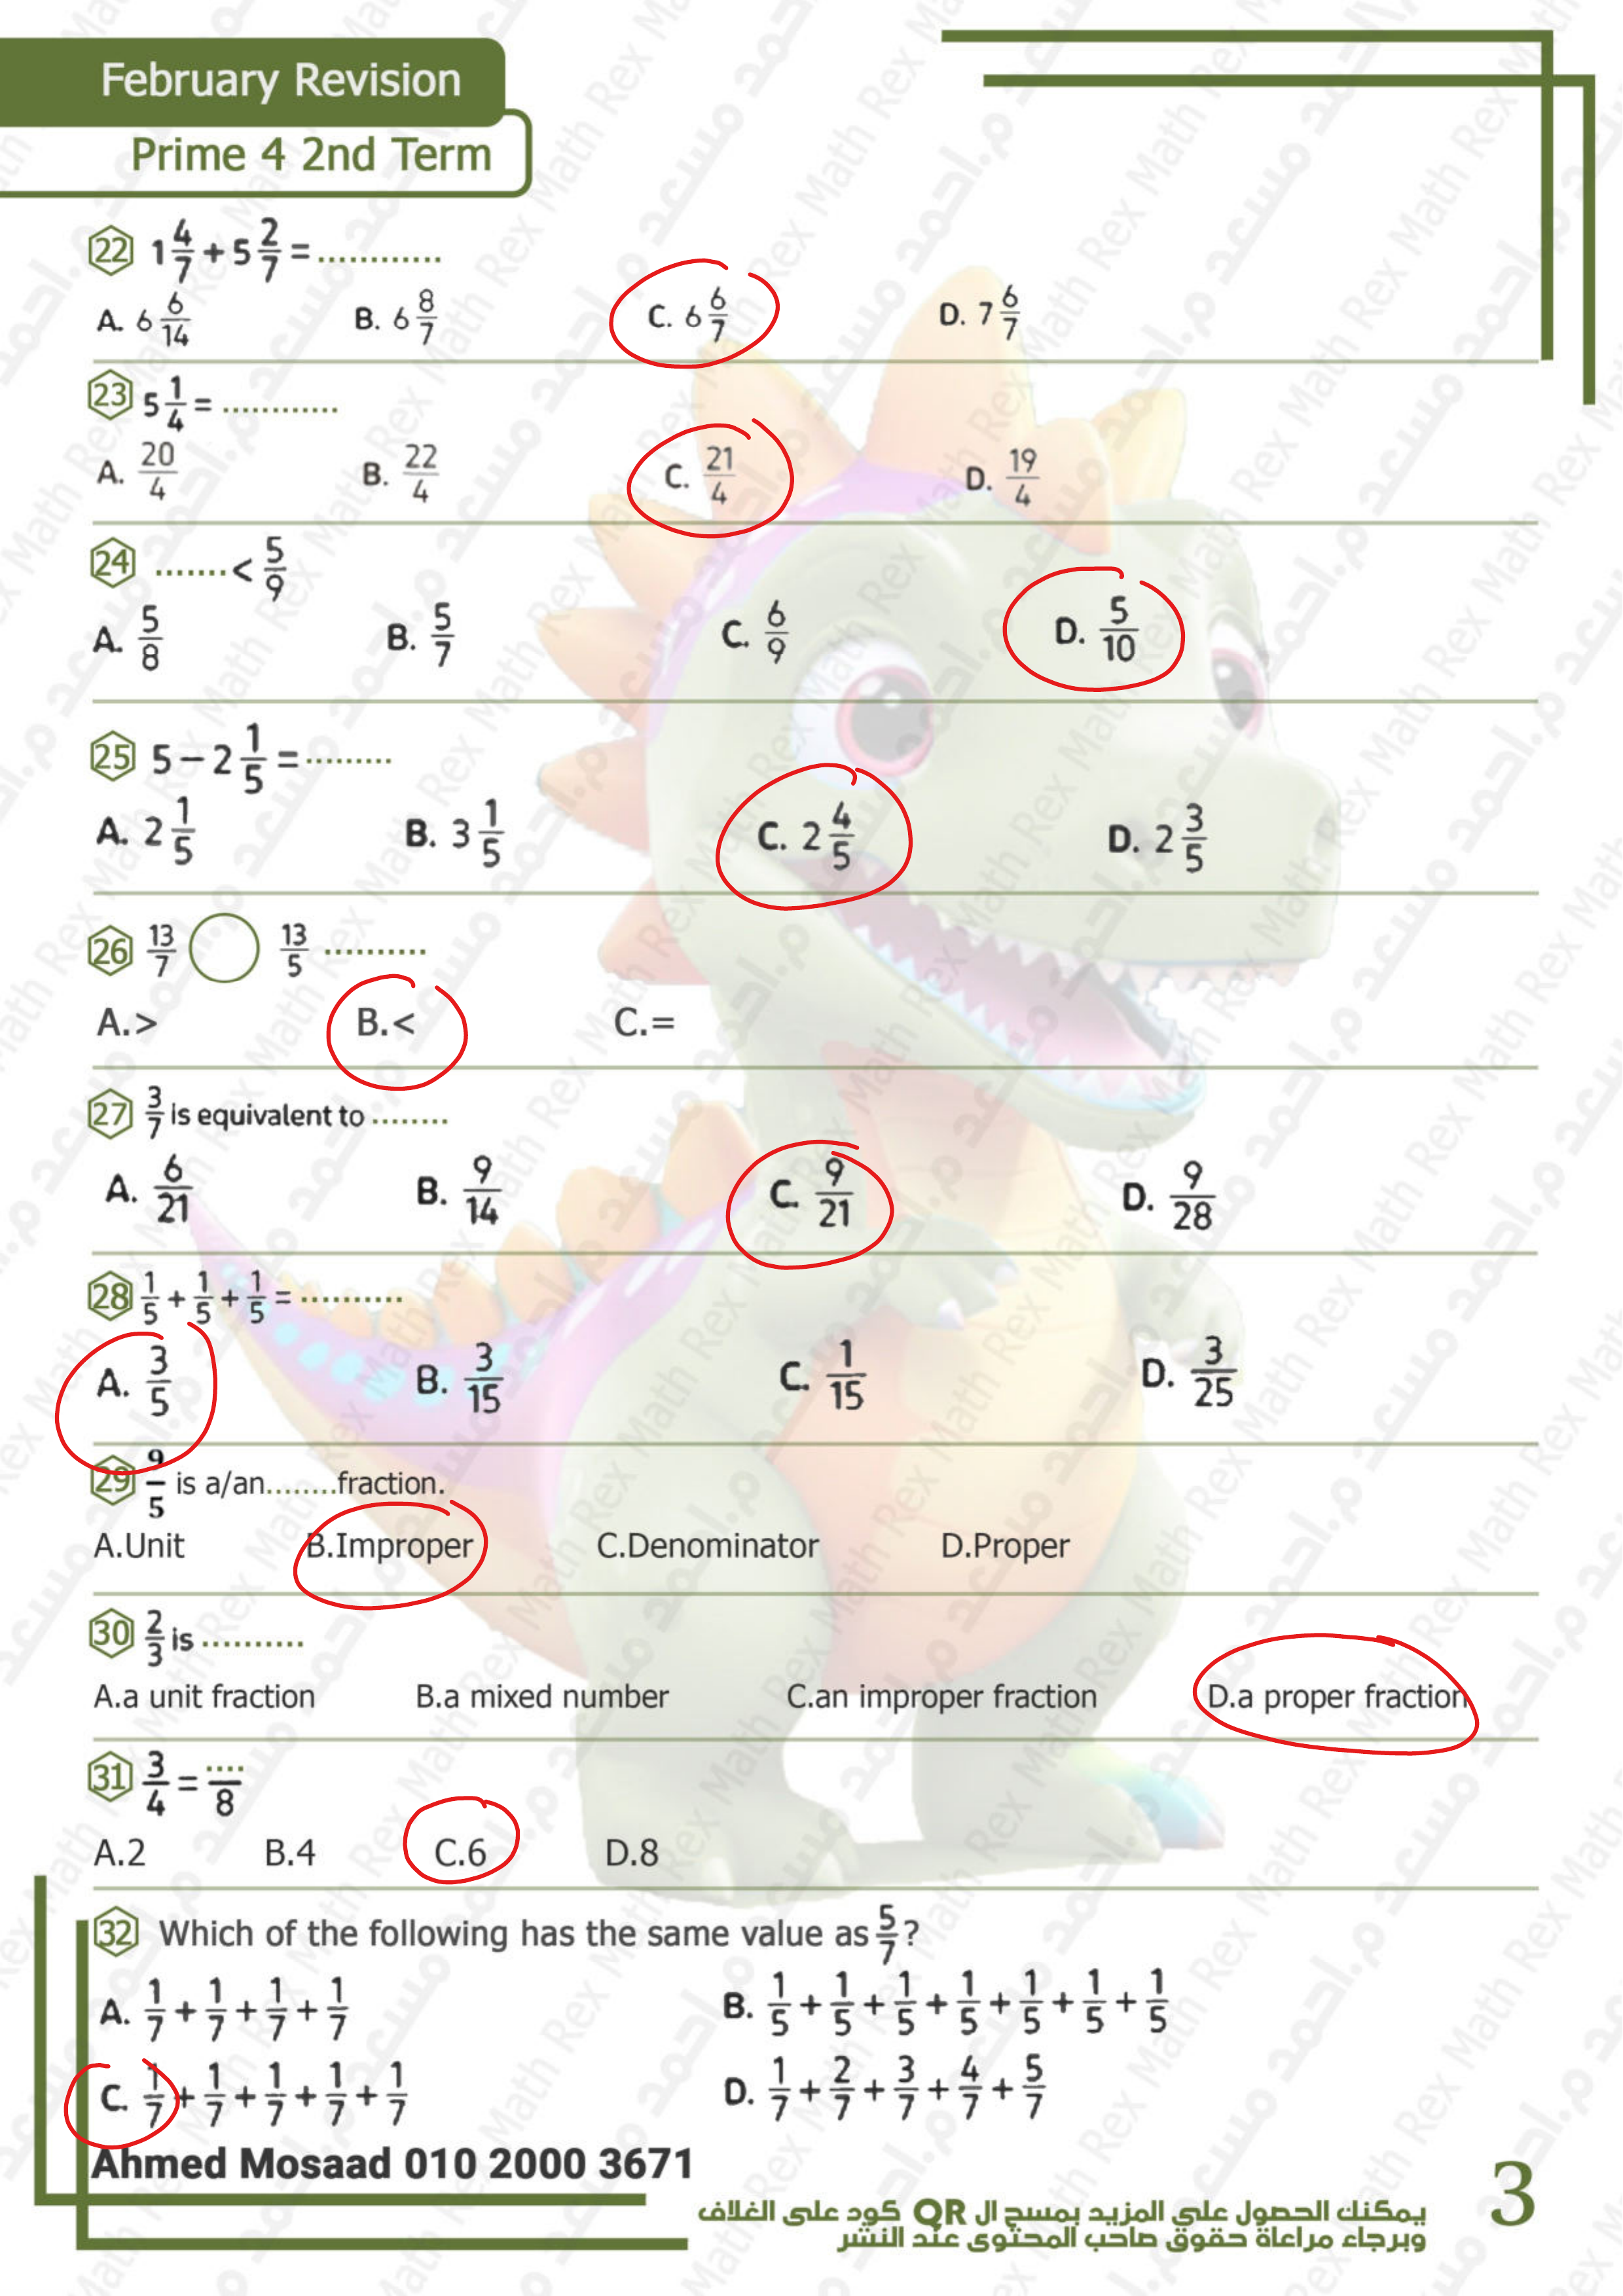 February Revision
Prime 4 2nd Term
22 1 4/7 + 5 2/7 = ............
A. 6 6/14 B. 6 8/7 C. 6 6/7 D. 7 6/7
23 5 1/4 = ............
A. 20/4 B. 22/4 C. 21/4 D. 19/4
24 ....... < 5/9
A. 5/8 B. 5/7 C. 6/9 D. 5/10
25 5 − 2 1/5 = .........
A. 2 1/5 B. 3 1/5 C. 2 4/5 D. 2 3/5
26 13/7 13/5 ..........
A.> B.< C.=
27 3/7 is equivalent to ........
A. 6/21 B. 9/14 C. 9/21 D. 9/28
28 1/5 + 1/5 + 1/5 = ..........
A. 3/5 B. 3/15 C. 1/15 D. 3/25
29 9/5 is a/an........fraction.
A.Unit B.Improper C.Denominator D.Proper
30 2/3 is ..........
A.a unit fraction B.a mixed number C.an improper fraction D.a proper fraction
31 3/4 = ..../8
A.2 B.4 C.6 D.8
32 Which of the following has the same value as 5/7?
A. 1/7 + 1/7 + 1/7 + 1/7 B. 1/5 + 1/5 + 1/5 + 1/5 + 1/5 + 1/5 + 1/5
C. 1/7 + 1/7 + 1/7 + 1/7 + 1/7 D. 1/7 + 2/7 + 3/7 + 4/7 + 5/7
Ahmed Mosaad 010 2000 3671
يمكنك الحصول على المزيد بمسح ال QR كود على الغلاف
وبرجاء مراعاة حقوق صاحب المحتوى عند النشر
3
Math Rex م.احمد مسعد